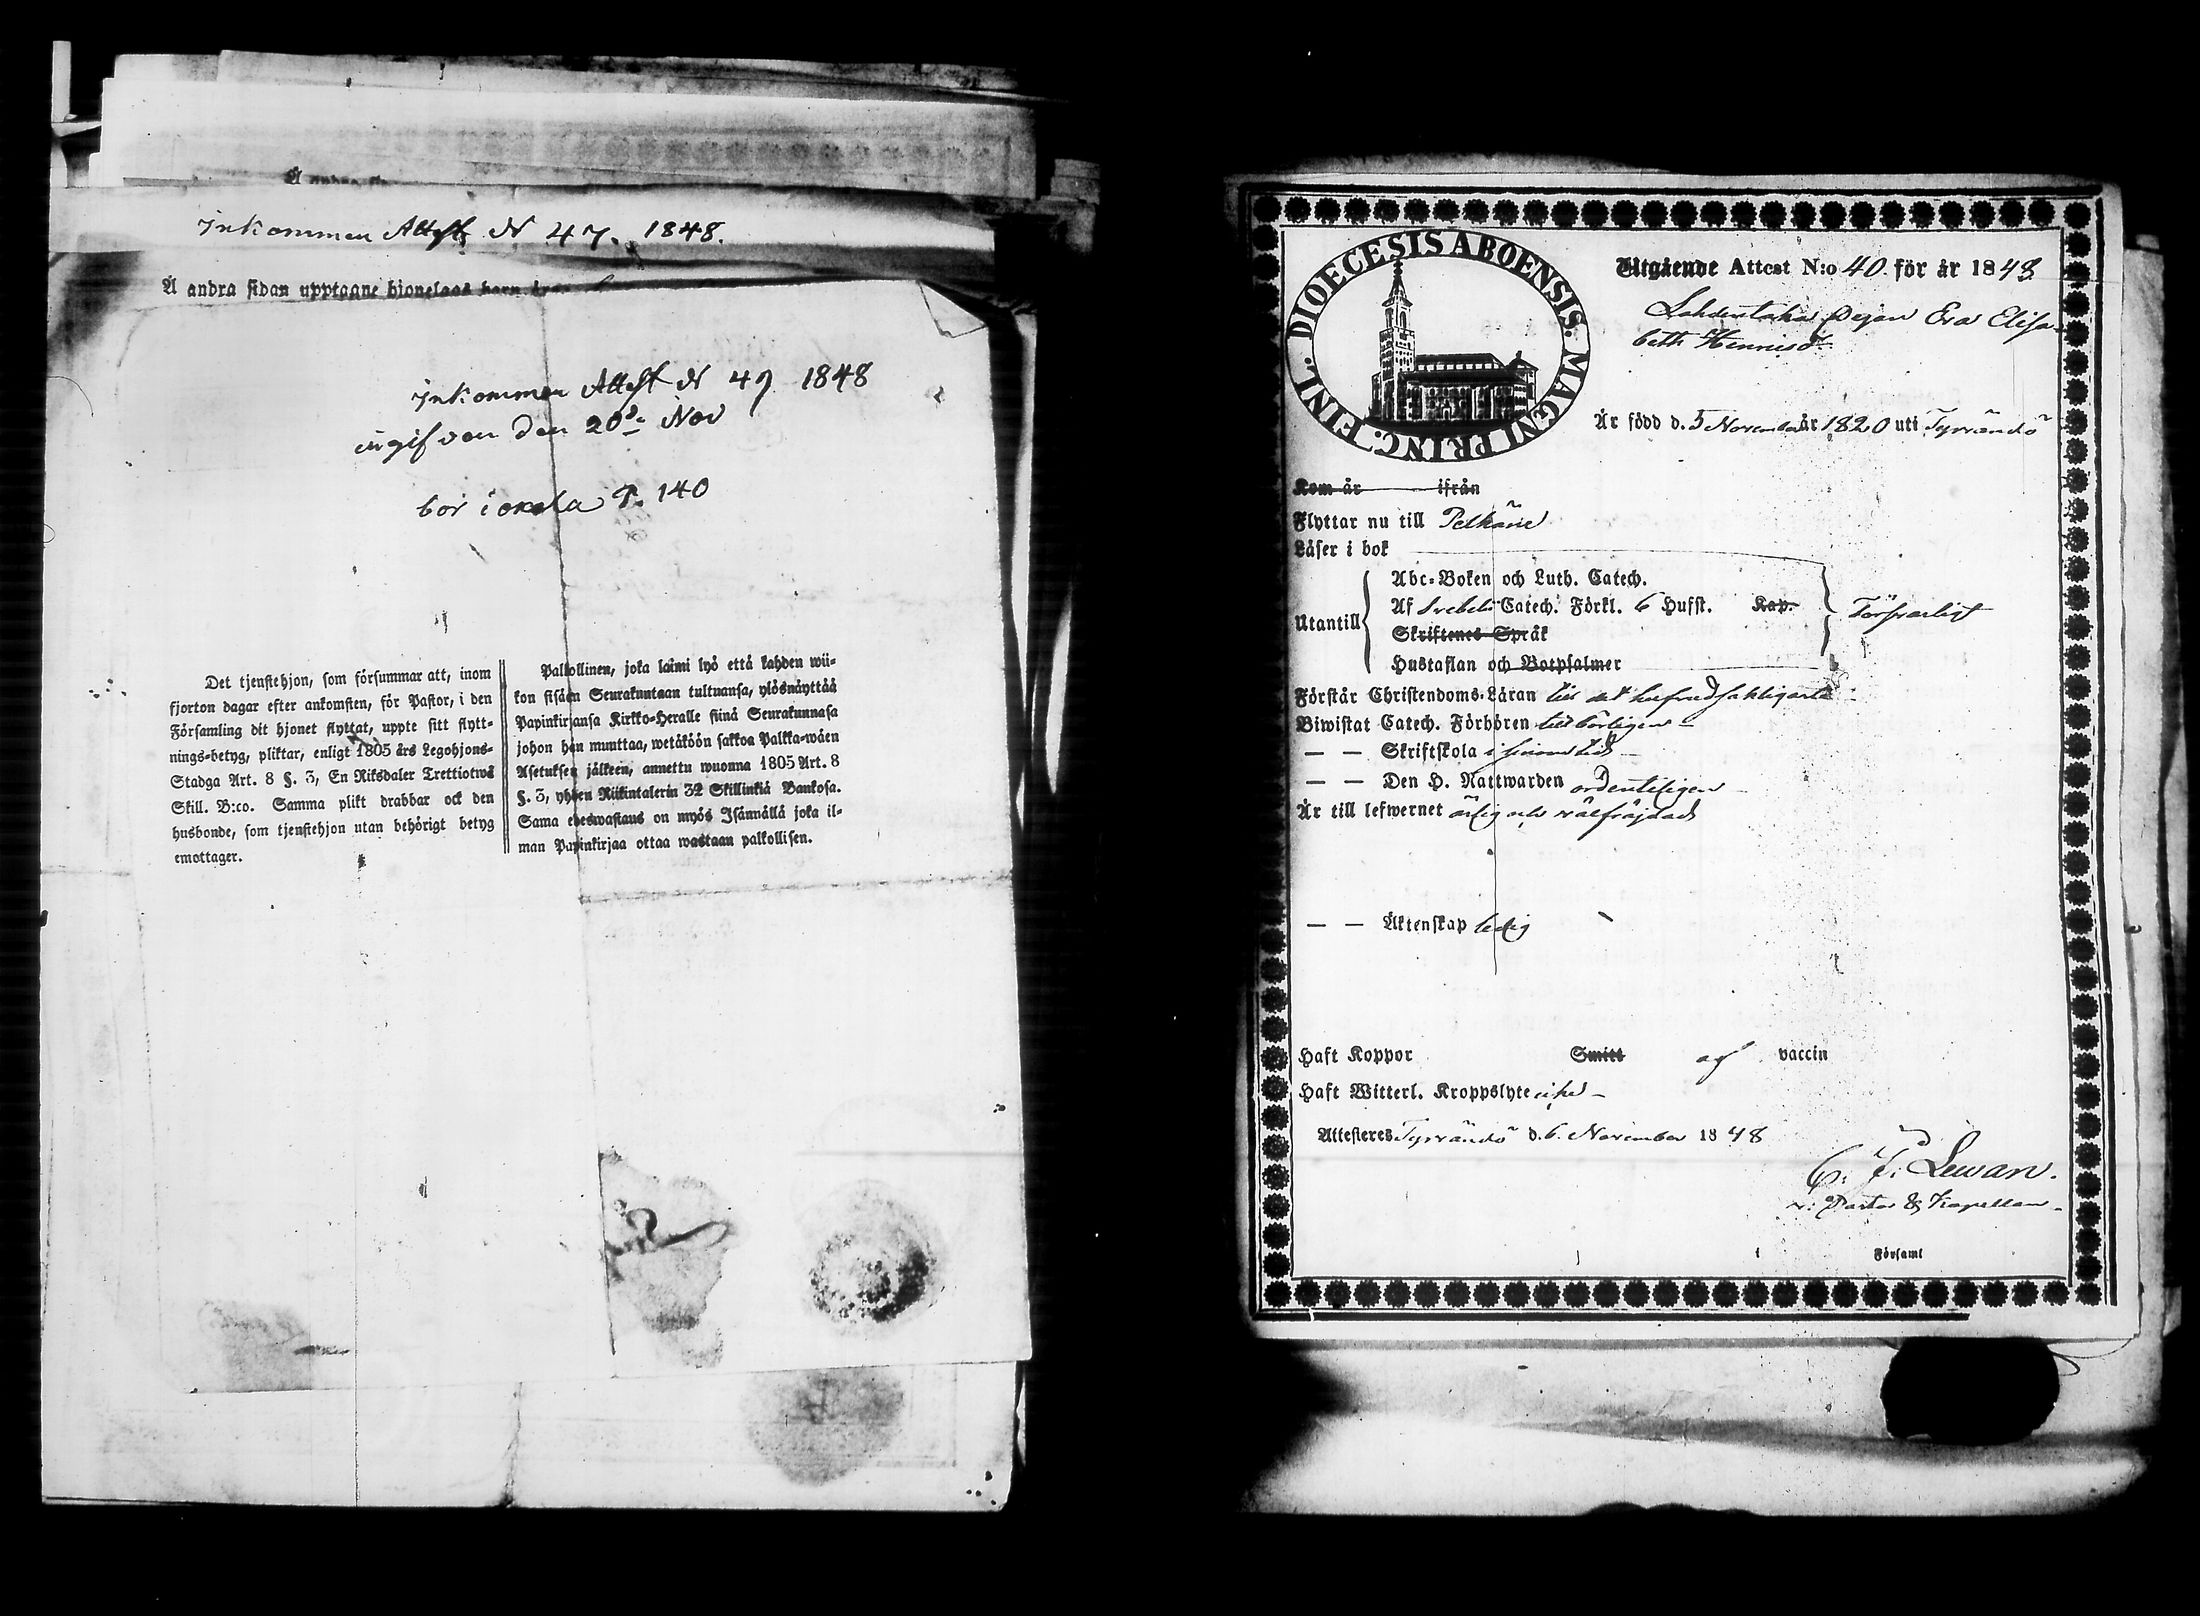 Inkommen Attest N 47. 1848.
Å andra sidan upptagne hjonelags barn äro
inkommen Attest N 49 1848
ingifven den 20de Nov
bor i onkala P. 140
Det tjenstehjon, som försummar att, inom
fjorton dagar efter ankomsten, för Pastor, i den
Församling dit hjonet flyttat, uppte sitt flytt-
nings-betyg, pliktar, enligt 1805 års Legohjons-
Stadga Art. 8 §. 3, En Riksdaler Trettiotwå
Skill. B:co. Samma plikt drabbar ock den
husbonde, som tjenstehjon utan behörigt betyg
emottager.
Palkollinen, joka laimi lyö että kahden wii-
kon sisään Seurakuntaan tultuansa, ylösnäyttää
Papinkirjansa Kirkko-Heralle siinä Seurakunnasa
johon hän muuttaa, wetäköön sakkoa Palkka-wäen
Asetuksen jälkeen, annettu wuonna 1805 Art. 8
§. 3, yhden Riikintalerin 32 Skillinkiä Bankosa.
Sama edeswastaus on myös Isännällä joka il-
man Papinkirjaa ottaa wastaan palkollisen.
DIOECESIS ABOENSIS. MAGNI PRINC. FINL.
Utgående Attest N:o 40. för år 1848
Pigan Eva Elisa-
beth Henricsdr
Är född d. 5 November år 1820 uti Tyrvändö
Kom år ifrån
Flyttar nu till Pelkäne
Läser i bok
Abc-Boken och Luth. Catech.
Utantill Af Svebeli Catech. Förkl. 6 Hufst. Kap. Försvarligt
Skriftenes Språk
Hustaflan och Botpsalmer
Förstår Christendoms-Läran till det hufvudsakligaste
Biwistat Catech. Förhören tillbörligen
— — Skriftskola i sinom tid
— — Den H. Nattwarden ordenteligen
Är till lefwernet ärlig och välfräjdad
— — Äktenskap ledig
Haft Koppor Smitt af vaccin
Haft Witterl. Kroppslyte icke
Attesteres Tyrvändö d. 6. November 1848
C. J. Lewan.
v: Pastor & Kapellan.
i Församl